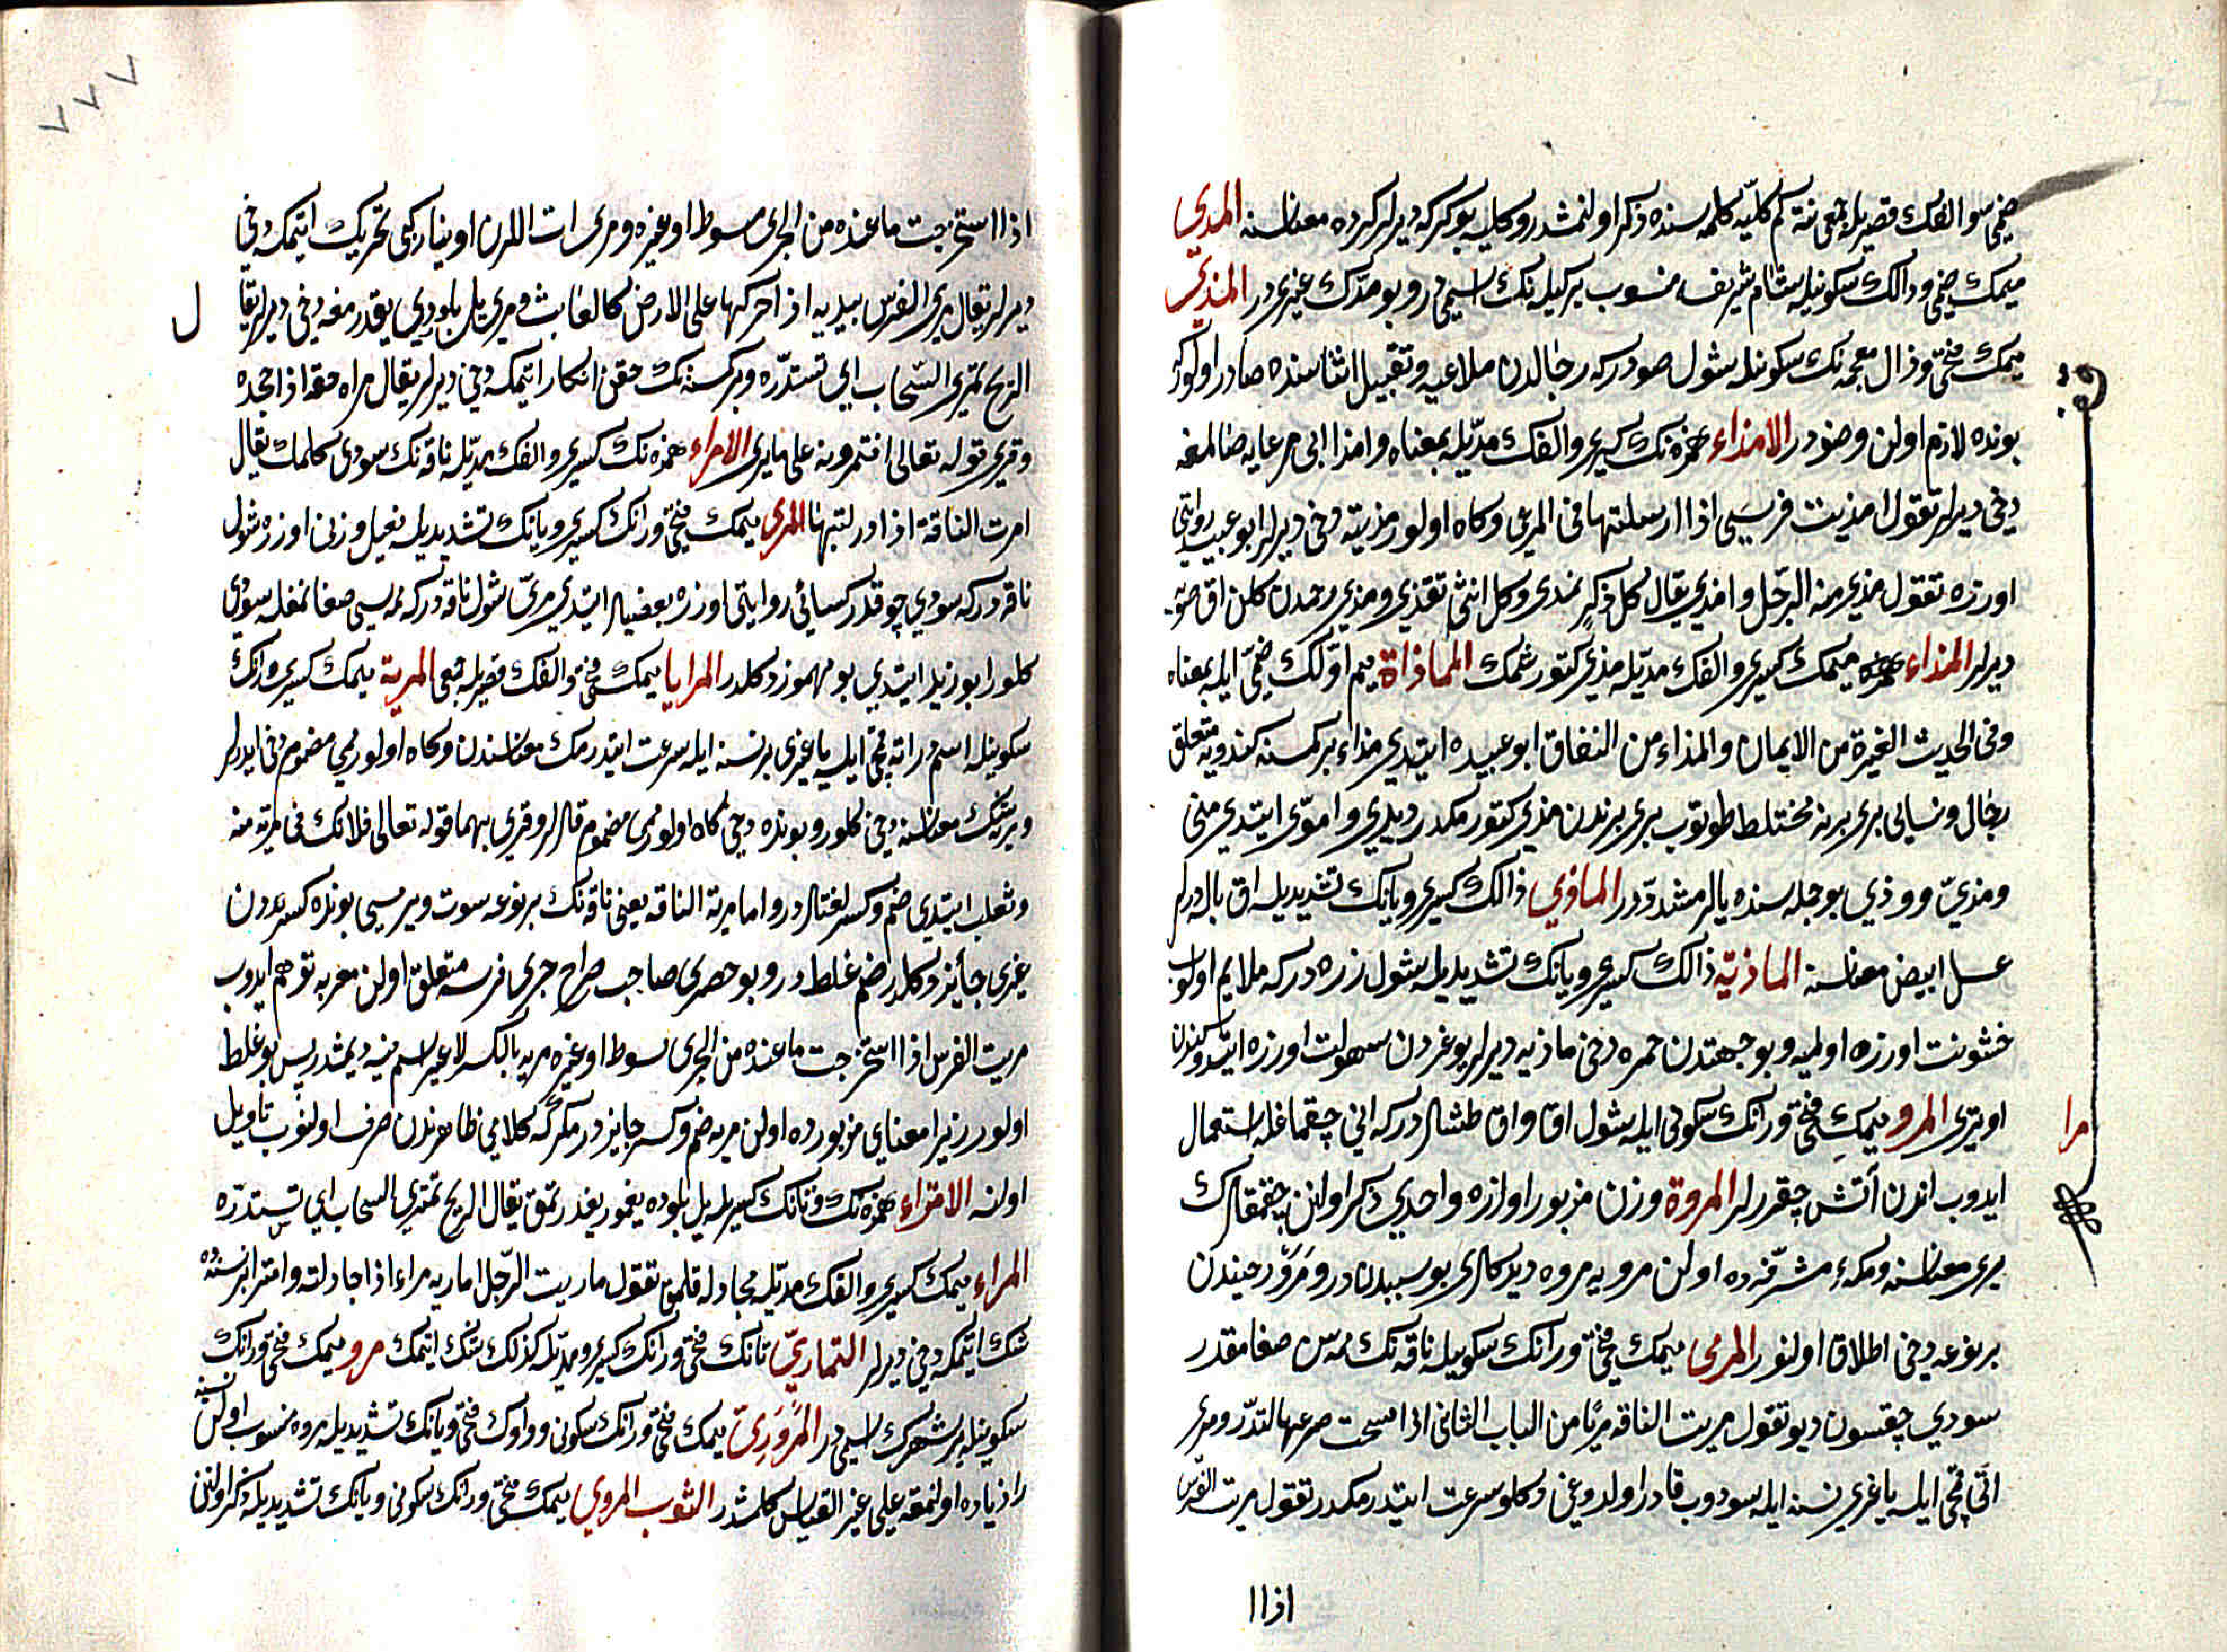 ضمی سو الفك قصریله جمعی نته كم كلیه كلمه سنده ذكر اولنمشدر وكلیه بوكركه دیرلر كرده معناسنه المدی
میمك ضمی ودالك سكونیله شام شریفه منسوب بر كیله نك اسمیدر وبو مدّك غیریدر المذی
میمك فتحی وذال معجمه نك سكونیله شول صودر كه رجالدن ملاعبه وتقبیل اثناسنده صادر اولور
بونده لازم اولن وضودر الامذاء همزه نك كسری والفك مدّیله بمعناه وامذا ابی مرعایه صالمغه
دخی دیرلر تقول امذیت فرسی اذا ارسلتها فی المرعی وكاه اولور مذیته دخی دیرلر ابو عبید روایتی
اوزره تقول مذی منه الرّجل وامذی یقال كل ذكر یمذی وكل انثی تقذی ومذی رحمدن كلن اق صویه
دیرلر المذاء میمك كسری والفك مدّیله مذی كتورشمك المماذاة میم اوّلك ضمّی ایله بمعناه
وفی الحدیث الغیرة من الایمان والمذاء من النفاق ابو عبیده ایتدی مذاء بر كمسنه كندویه متعلق
رجال ونسایی بری برینه مختلط طوتوب بری برندن مذی كتورمكدر دیدی واموّی ایتدی منی
ومذیّ وودّی بو جمله سنده یالر مشدّددر الماذی ذالك كسری ویانك تشدیدیله اق باله دیرلر
عسل ابیض معناسنه الماذیّه ذالك كسری ویانك تشدیدیله شول زره در كه ملایم اولوب
خشونت اوزره اولمیه وبو جهتدن خمره دخی ماذیه دیرلر بوغزدن سهولت اوزره ایتدوكندن
اوتری المرو میمك فتحی ورانك سكونی ایله شول اق واق طشلردر كه انی چقماغله استعمال
ایدوب اندن آتش چقررلر المروة وزن مزبور اوزره واحدی ذكر اولنن چقمقلرك
بری معناسنه ومكهٔ مشرّفه ده اولن مرویه مروه دیدكلری بو سببدندر ومرو رحیندن
بر نوعه دخی اطلاق اولنور المری میمك فتحی ورانك سكونیله ناقه نك ممه سن صغامقدر
سودی چقسون دیو تقول مریت الناقه مریا من الباب الثانی اذا مسحت ضرعها لتدرّ ومری
اتی قمچی ایله یا غیری نسنه ایله سودوب قادر اولدوغی وكلو سرعت ایتدرمكدر تقول مریت الفرس
اذا ا
مرا
اذا استخرجت ما عنده من الجری بسوط او غیره ومری ات اللرن اوینار كبی تحریك ایتمكه دخی
دیرلر یقال مری الفرس بیدیه اذا حركها علی الارض كالعابث ومری یل بلودی یغدرمغه دخی دیرلر یقال
الریح تمری السّحاب ای تستدرّه وبر كمسنه نك حقن انكار ایتمكه دخی دیرلر یقال مراه حقه اذا جحده
وقری قوله تعالی افتمرونه علی ما یری الامراء همزه نك كسری والفك مدّیله ناقه نك سودی كلمك یقال
امرت الناقة اذا در لبنها المری میمك فتحی ورانك كسری ویانك تشدیدیله فعیل وزنی اوزره شول
ناقه در كه سودی چوقدر كسائی روایتی اوزره بعضیلر ایتدی مریّ شول ناقه در كه ممه سی صغانمغله سودی
كلور ابو زید ایتدی بو مهموز دكلدر المرایا میمك فتحی والفك قصریله جمعی المریة میمك كسری ورانك
سكونیله اسمدر اته قمچی ایله یا غیری بر نسنه ایله سرعت ایتدرمك معناسندن وكاه اولور میمی مضموم دخی ایدرلر
وبر شك معناسنه دخی كلور وبونده دخی كاه اولور میمی مضموم قلرلر وقری بهما قوله تعالی فلا تك فی مریة منه
وثعلب ایتدی ضم وكسر لغتلردر واما مریة الناقه یعنی ناقه نك بر نوعه سوت ویرمسی بونده كسره دن
غیری جائز دكلدر ضم غلطدر وبو حصری صاحب صراح جری فرسه متعلق اولن معریه توهم ایدوب
مریت الفرس اذا استخرجت ما عنده من الجری بسوط او غیره مریه بالكسر لا غیر اسم منه دیمشدر پس بو غلط
اولور زیرا معنای مزبورده اولن مریه ضم وكسر جایزدر مكر كه كلامی ظاهرندن صرف اولنوب تاویل
اولنه الامتراء همزه نك وتانك كسریله یل بلوده یغمور یغدرتمق یقال الریح تمتری السحاب ای تستدرّه
المراء میمك كسری والفك مدّیله مجادله قلمق تقول ماریت الرّجل اماریه مراء اذا جادلته وامترا بر نسنه ده
شك ایتمكه دخی دیرلر التماریّ تانك فتحی ورانك كسری ومدّیله كذلك شك ایتمك مرو میمك فتحی ورانك
سكونیله بر شهرك اسمیدر المروزی میمك فتحی ورانك سكونی وواوك فتحی ویانك تشدیدیله مروه منسوب اولن نسنه
زا زیاده اولنمغه علی غیر القیاس كلمشدر الثوب المروی میمك فتحی ورانك سكونی ویانك تشدیدیله ذكر اولنن